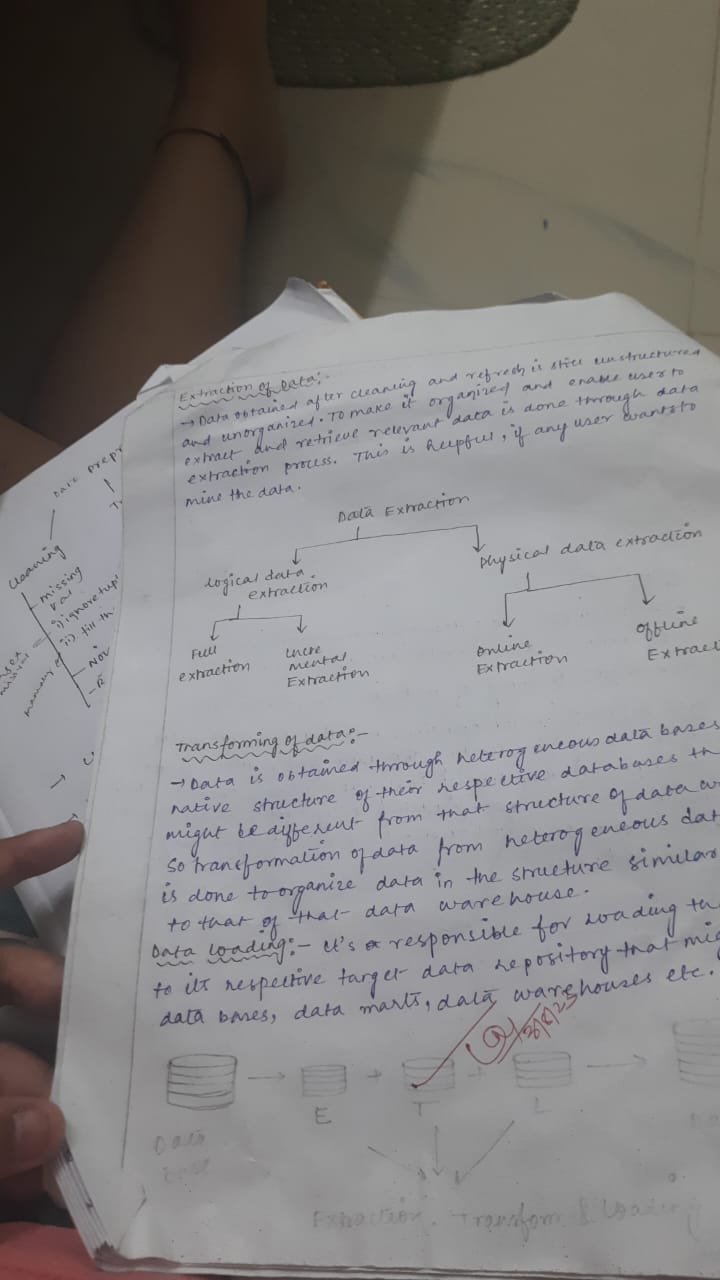 Extraction of Data:-
→ Data obtained after cleaning and refresh is still unstructured
and unorganized. To make it organized and enable user to
extract and retrieve relevant data is done through data
extraction process. This is helpful, if any user wants to
mine the data.
Data Extraction
Logical data
extraction
Physical data extraction
Full
extraction
Incre
mental
Extraction
Online
Extraction
Offline
Extrac
Transforming of data:-
→ Data is obtained through heterogeneous data bases
native structure of their respective databases th
might be different from that structure of data w
So transformation of data from heterogeneous dat
is done to organize data in the structure similar
to that of that data warehouse.
Data loading:- It's responsible for loading th
to its respective target data repository that mig
data bases, data marts, data warehouses etc.
E + T + L
Data
base
Extraction. Transform & loading
Data prepr
cleaning
missing
val
i) ignore tupl
ii) fill th
Noi